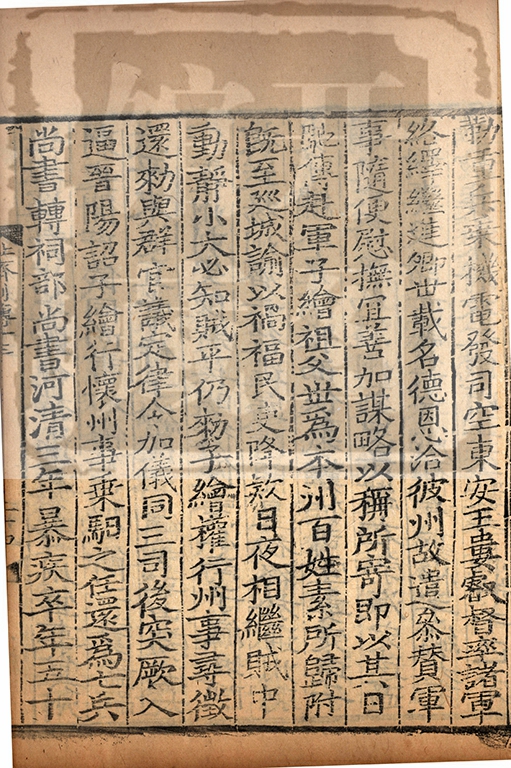 勒勁兵乘機電發司空東安王婁叡督率諸軍
絡繹繼進卿世載名德恩洽彼州故遣參賛軍
事隨便慰撫冝善加謀略以稱所寄即以其日
馳傳赴軍子繪祖父世爲本州百姓素所歸附
既至巡城諭以禍福民吏降欵日夜相繼賊中
動静小大必知賊平仍勑子繪權行州事尋徵
還勑與群官議定律令加儀同三司後突厥入
逼晉陽詔子繪行懷州事乗馹之任還爲七兵
尚書轉祠部尚書河清三年暴疾卒年五十